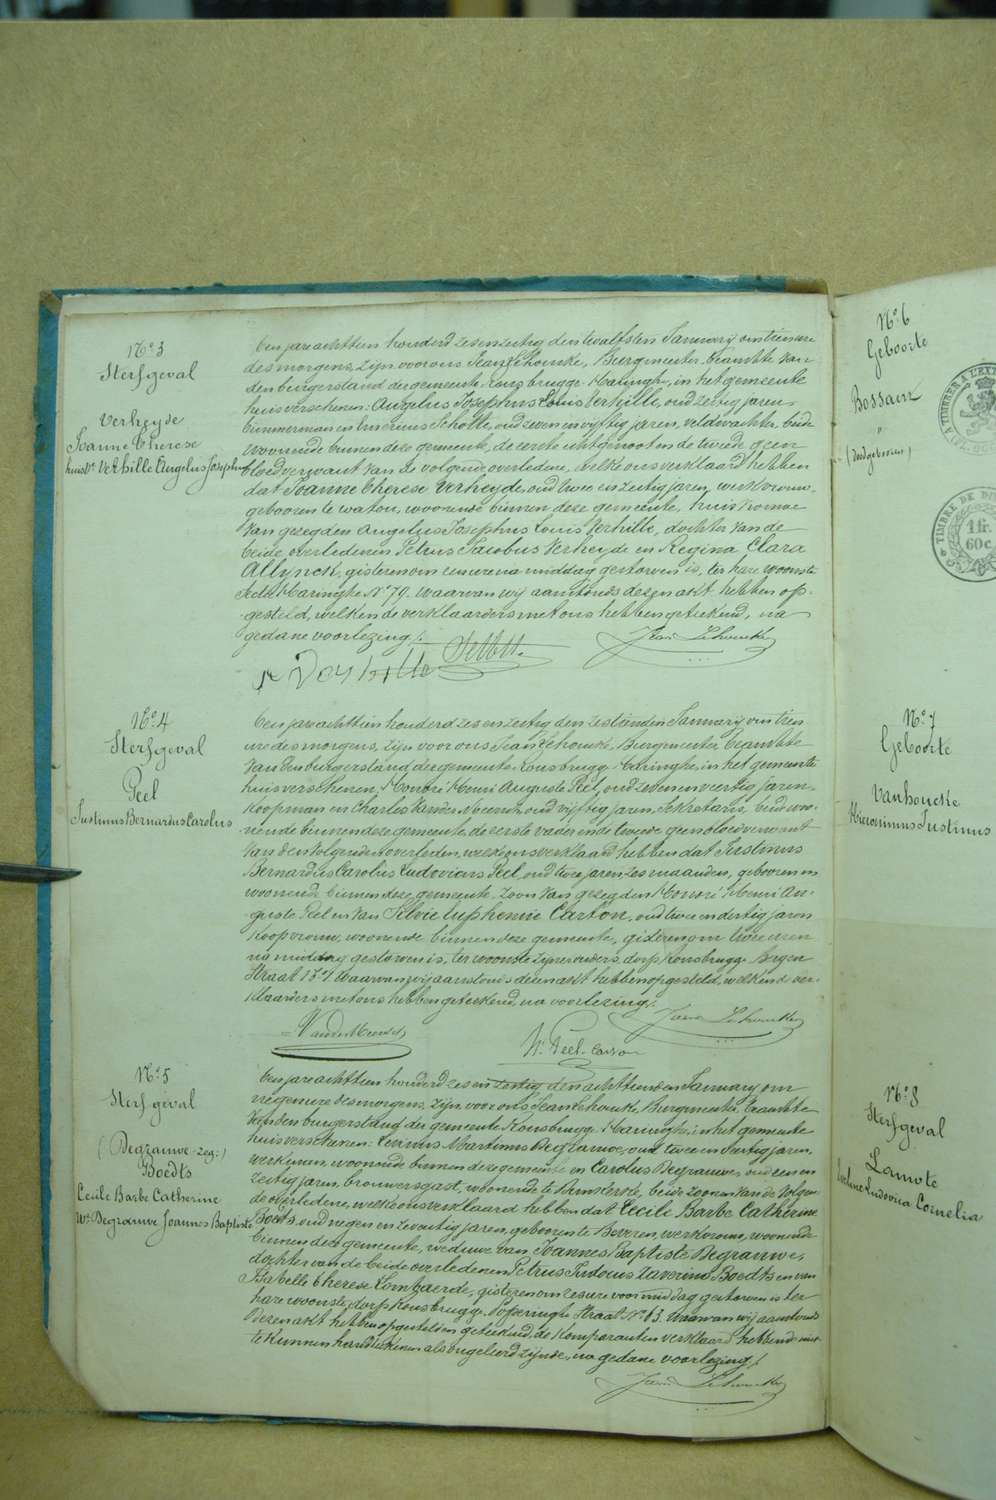 N°. 3
Sterfgeval
Verheyde
Joanne Therese
huisv. Verhille Angelus Josephus
Een jare achttien honderd zes en zestig den twaalfsten January om tien ure
des morgens, zijn voor ons Jean Lehoucke, Burgmeester beambte van
den burgerstand der gemeente Rousbrugge-Haringhe, in het gemeente
huis verschenen: Angelus Josephus Louis Verhille, oud zestig jaren,
timmerman en Schotte, oud zeven en vyftig jaren, veldwachter, beide
woonende binnen deze gemeente, de eerste echtgenoot en de tweede geen
bloedverwant van de volgende overledene, welke ons verklaard hebben
dat Joanne Therese Verheyde, oud twee en zestig jaren, werkvrouw,
geboren te Watou, woonende binnen deze gemeente, huisvrouw
van gezegden Angelus Josephus Louis Verhille, dochter van de
beide overledenen Petrus Jacobus Verheyde en Regina Clara
Allynck, gisteren om een ure na middag gestorven is, ter hare woonste
Sectie Haringhe N° 79. waarvan wij aanstonds dezen akt hebben op-
gesteld, welken de verklaarders met ons hebben geteekend, na
gedane voorlezing/.
Jean Lehoucke
Verhille
N°. 4
Sterfgeval
Peel
Justinus Bernardus Carolus
Een jare achttien honderd zes en zestig den zestienden January om tien
ure des morgens, zijn voor ons Jean Lehoucke, Burgmeester beambte
van den burgerstand der gemeente Rousbrugge-Haringhe, in het gemeente
huis verschenen, Honoré Henri Auguste Peel, oud zeven en veertig jaren,
koopman en Charles Vander Meersch, oud vijftig jaren, Sekretaris, beide woo-
nende binnen deze gemeente, de eerste vader en de tweede geen bloedverwant
van den volgenden overleden, welke ons verklaard hebben dat Justinus
Bernardus Carolus Ludovicus Peel, oud twee jaren zes maanden, geboren en
woonende binnen deze gemeente, zoon van gezegden Honoré Henri Au-
guste Peel en van Silvie Euphemie Carton, oud twee en dertig jaren
koopvrouw, woonende binnen deze gemeente, gisteren om twee uren
na middag gestorven is, ter woonste zijner ouders, dorp Rousbrugge Bergen
Straat 137 waarvan wij aanstonds dezen akt hebben opgesteld, welken de ver-
klaarders met ons hebben geteekend, na voorlezing/.
Jean Lehoucke
VanderMeersch
H. Peel-Carton
N°. 5
Sterfgeval
(Degrauwe zeg:)
Boedts
Cecile Barbe Catherine
We. Degrauwe Joannes Baptiste
Een jare achttien honderd zes en zestig den achttienden January om
negen ure des morgens, zijn voor ons Jean Lehoucke, Burgmeester beambte
van den burgerstand der gemeente Rousbrugge-Haringhe, in het gemeente
huis verschenen: Martinus Degrauwe, oud twee en dertig jaren,
werkman, woonende binnen deze gemeente en Carolus Degrauwe, oud een en
zestig jaren, brouwersgast, woonende te Ramskerke, beide zoonen van de volgen-
de overledene, welke ons verklaard hebben dat Cecile Barbe Catherine
Boedts, oud negen en zeventig jaren, geboren te Beveren, werkvrouw, woonende
binnen deze gemeente, weduwe van Joannes Baptiste Degrauwe,
dochter van de beide overledenen Petrus Judocus Xaverius Boedts en van
Isabelle Therese Lombaerde, gisteren om zes ure voor middag gestorven is ter
hare woonste, dorp Rousbrugge Poperinghe Straat N° 63. Waarvan wij aanstonds
Dezen akt hebben opgesteld en geteekend, de komparanten verklaard hebbende niet
te kunnen handteekenen als ongeleerd zijnde, na gedane voorlezing/.
Jean Lehoucke
N°. 6
Geboorte
Bossaert
"
(Doodgeboren)
TIMBRE DE D
1 fr.
60 c.
N°. 7
Geboorte
Vanhoucke
Hieronimus Justinus
N°. 8
Sterfgeval
Lamote
Ludovica Cornelia